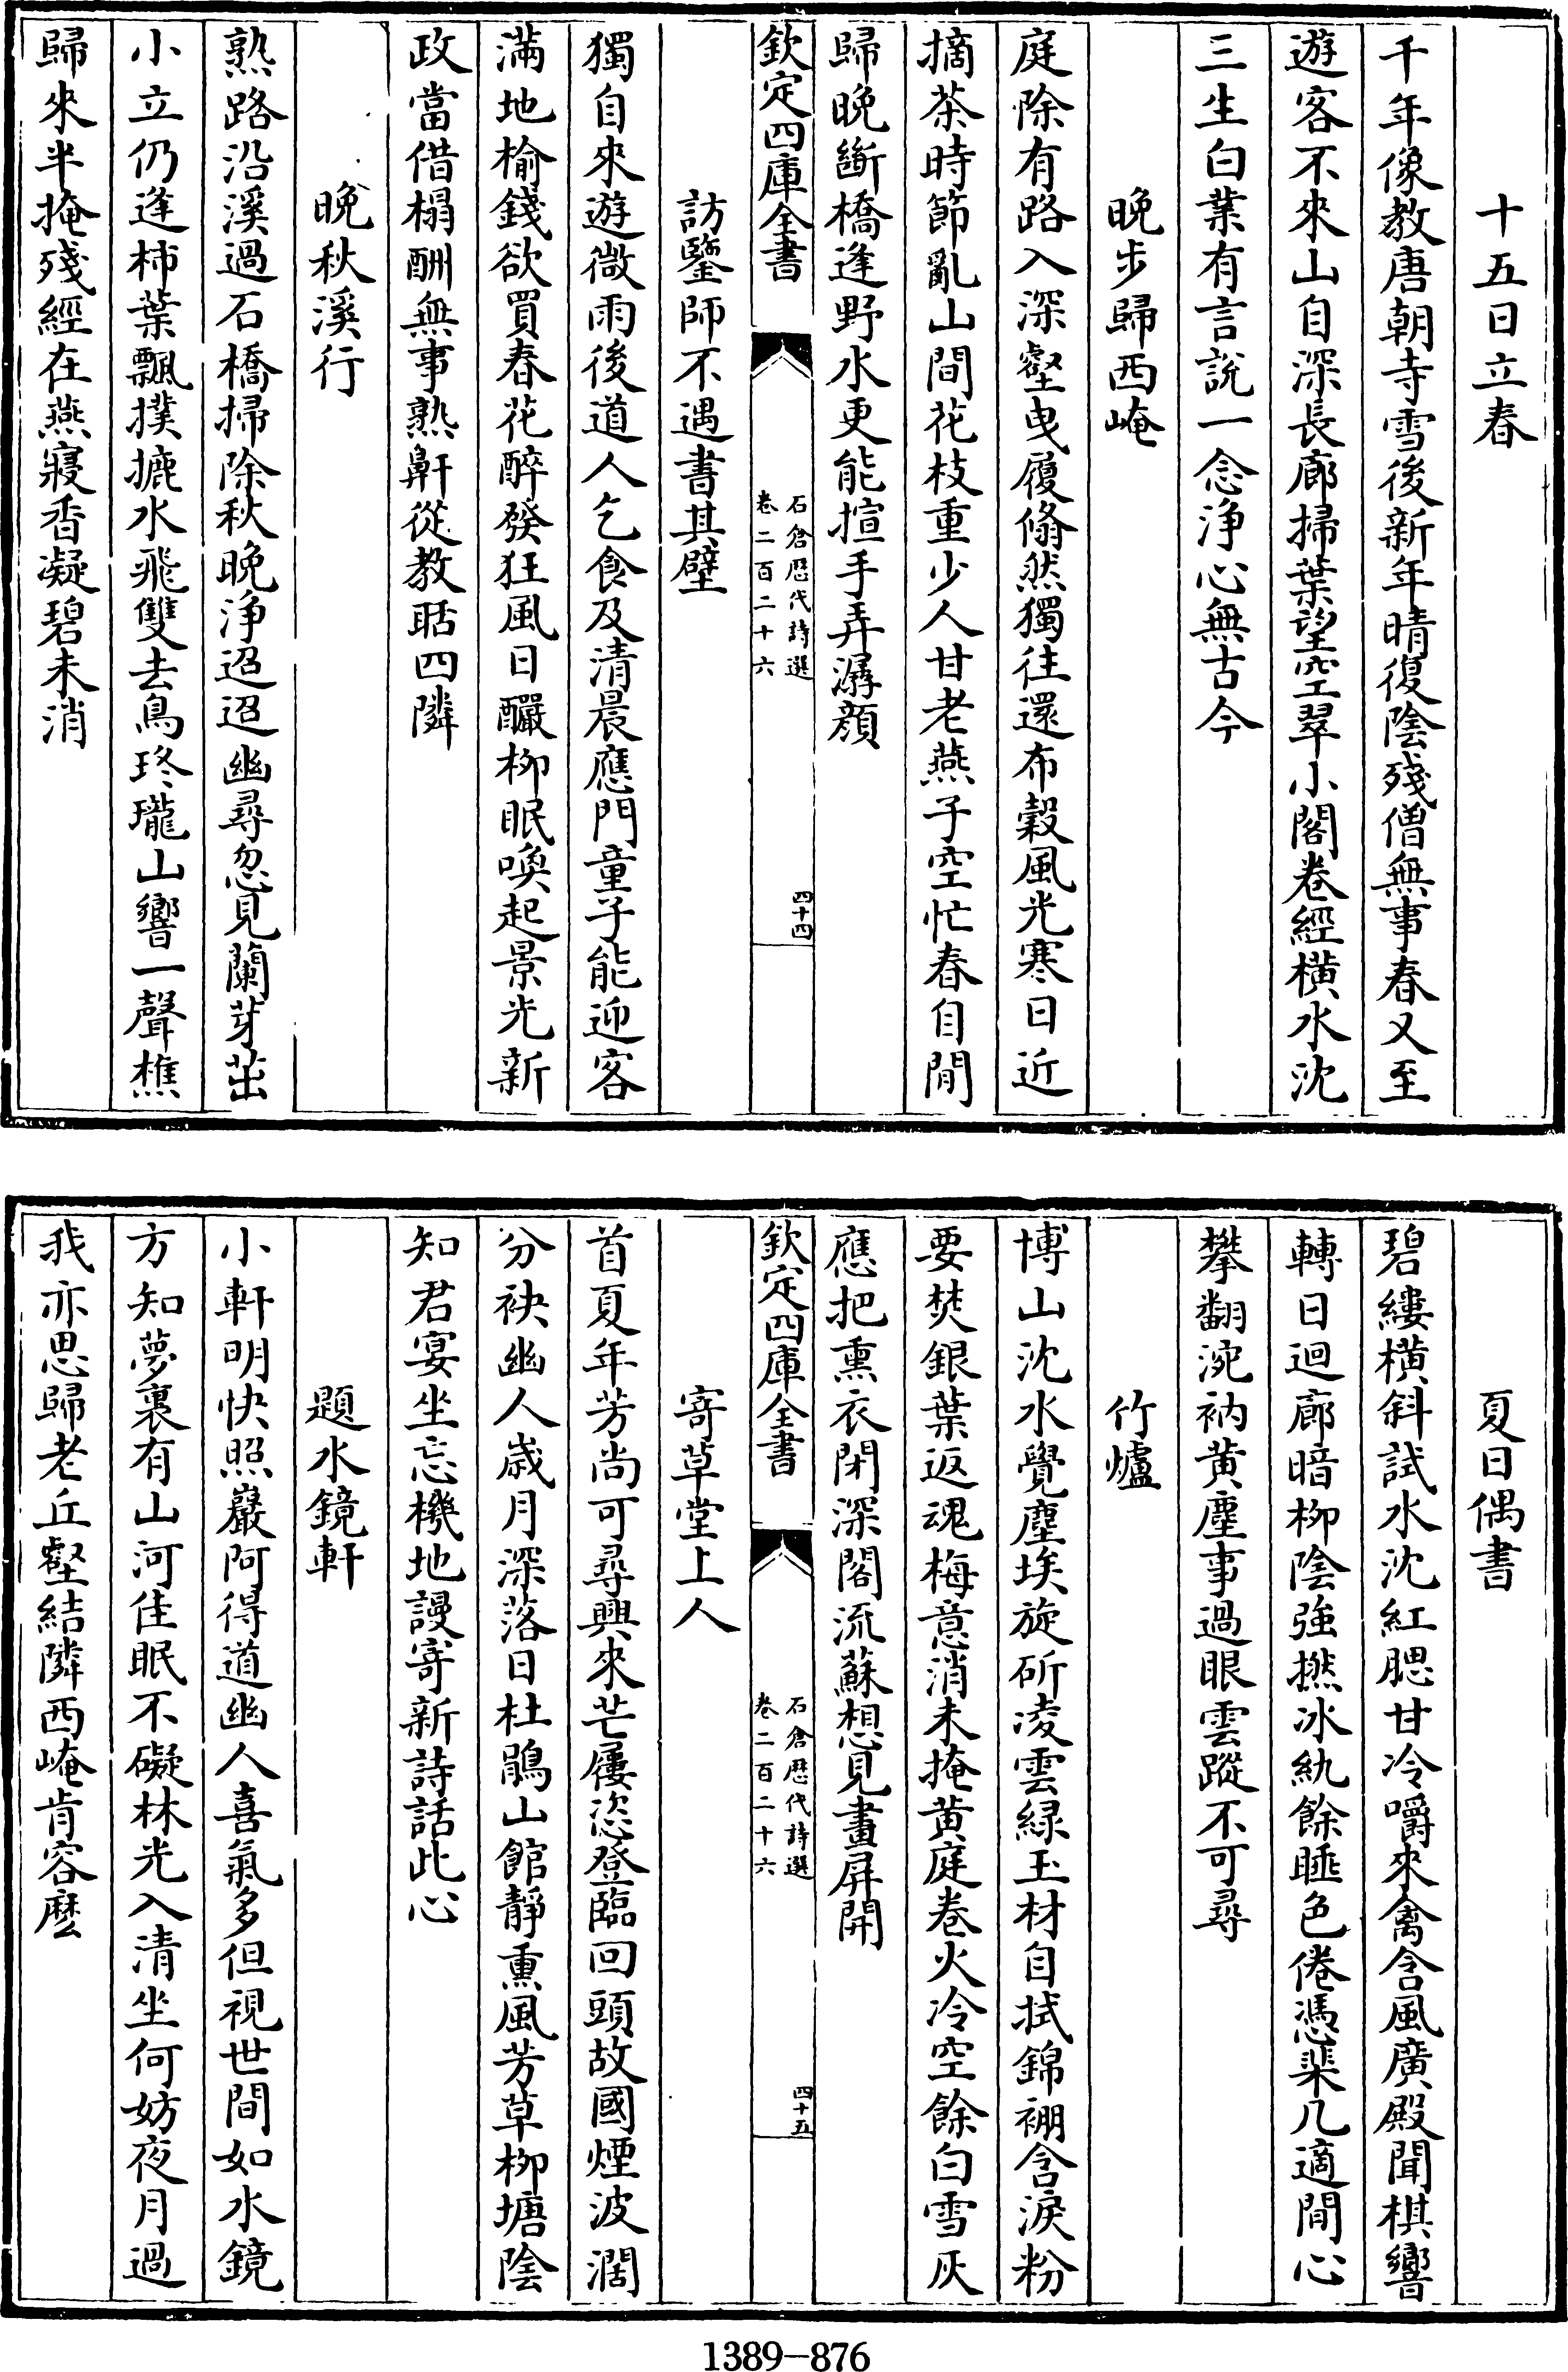 十五日立春
千年像教唐朝寺雪後新年晴復陰殘僧無事春又至
遊客不來山自深長廊掃葉望空翠小閣卷經橫水沈
三生白業有言說一念淨心無古今
晚步歸西崦
庭除有路入深壑曳履翛然獨往還布穀風光寒日近
摘茶時節亂山間花枝重少人甘老燕子空忙春自閒
歸晚斷橋逢野水更能揎手弄潺顏
欽定四庫全書
石倉歷代詩選
卷二百二十六
四十四
訪鑒師不遇書其壁
獨自來遊微雨後道人乞食及清晨應門童子能迎客
滿地榆錢欲買春花醉發狂風日釅柳眠喚起景光新
政當借榻酬無事熟鼾從教聒四隣
晚秋溪行
熟路沿溪過石橋掃除秋晚淨迢迢幽尋忽見蘭芽茁
小立仍逢柿葉飄撲摝水飛雙去鳥玲瓏山響一聲樵
歸來半掩殘經在燕寢香凝碧未消
夏日偶書
碧縷橫斜試水沈紅腮甘冷嚼來禽含風廣殿聞棋響
轉日迴廊暗柳陰強撚冰紈餘睡色倦憑棐几適閒心
攀翻涴衲黃塵事過眼雲蹤不可尋
竹爐
博山沈水覺塵埃旋斫凌雲綠玉材自拭錦裯含淚粉
要焚銀葉返魂梅意消未掩黃庭卷火冷空餘白雪灰
應把熏衣閉深閣流蘇想見畫屏開
欽定四庫全書
石倉歷代詩選
卷二百二十六
四十五
寄草堂上人
首夏年芳尚可尋興來芒屨恣登臨回頭故國煙波濶
分袂幽人歲月深落日杜鵑山館靜熏風芳草柳塘陰
知君宴坐忘機地謾寄新詩話此心
題水鏡軒
小軒明快照巖阿得道幽人喜氣多但視世間如水鏡
方知夢裏有山河佳眠不礙林光入清坐何妨夜月過
我亦思歸老丘壑結隣西崦肯容麽
1389—876